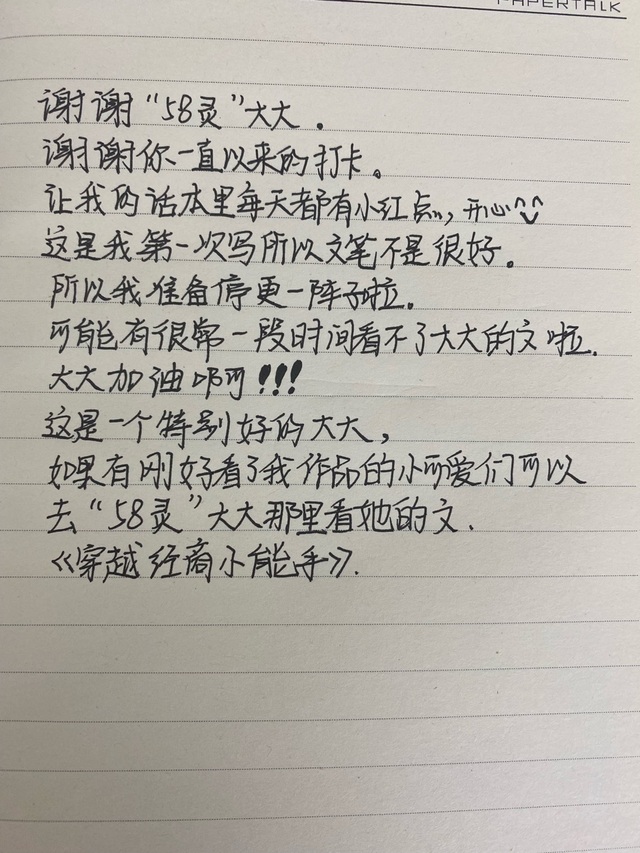 PAPERTALK
谢谢“58灵”大大.
谢谢你一直以来的打卡。
让我的话本里每天都有小红点,,,开心^^
这是我第一次写所以文笔不是很好。
所以我准备停更一阵子啦。
可能有很常一段时间看不了大大的文啦.
大大加油啊!!!
这是一个特别好的大大,
如果有刚好看了我作品的小可爱们可以
去“58灵”大大那里看她的文.
《穿越经商小能手》.